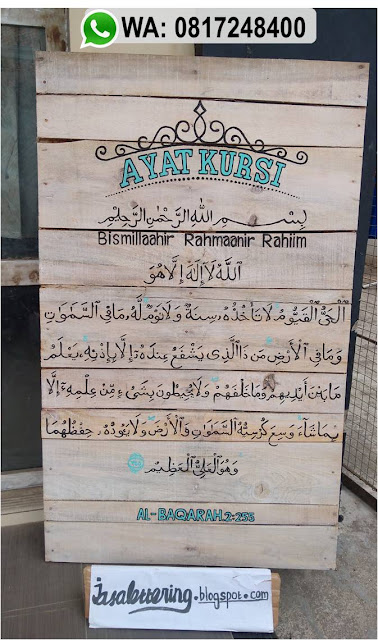 WA: 0817248400
AYAT KURSI
بِسْمِ اللّٰهِ الرَّحْمٰنِ الرَّحِيْمِ
Bismillaahir Rahmaanir Rahiim
اَللّٰهُ لَآ إِلٰهَ إِلَّا هُوَ
الْحَيُّ الْقَيُّومُ لَا تَأْخُذُهُ سِنَةٌ وَلَا نَوْمٌ لَّهُ مَا فِي السَّمٰوٰتِ
وَمَا فِي الْأَرْضِ مَن ذَا الَّذِي يَشْفَعُ عِندَهُ إِلَّا بِإِذْنِهِ يَعْلَمُ
مَا بَيْنَ أَيْدِيهِمْ وَمَا خَلْفَهُمْ وَلَا يُحِيطُونَ بِشَيْءٍ مِّنْ عِلْمِهِ إِلَّا
بِمَا شَآءَ وَسِعَ كُرْسِيُّهُ السَّمٰوٰتِ وَالْأَرْضَ وَلَا يَـُٔودُهُ حِفْظُهُمَا
وَهُوَ الْعَلِيُّ الْعَظِيْمُ
AL-BAQARAH.2:255
Jasalettering.blogspot.com